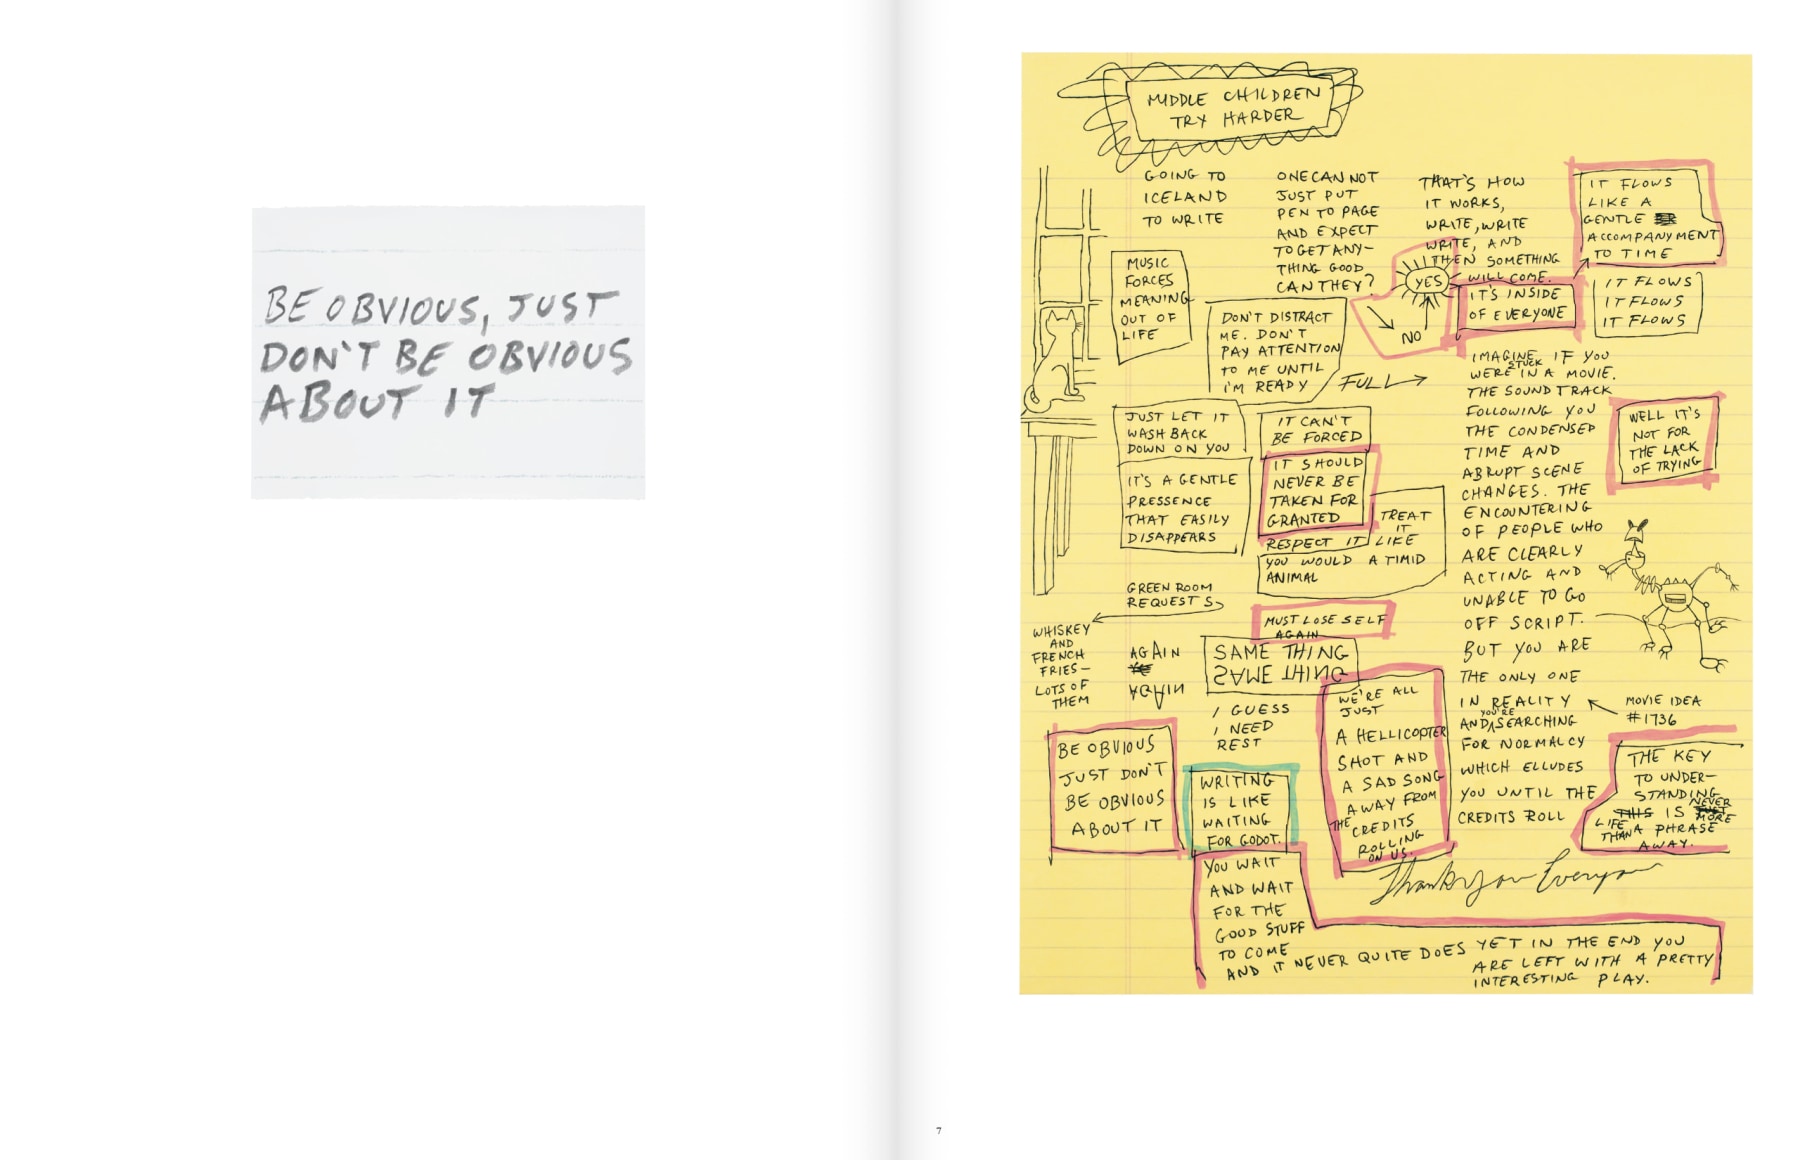 BE OBVIOUS, JUST
DON'T BE OBVIOUS
ABOUT IT
MIDDLE CHILDREN
TRY HARDER
GOING TO
ICELAND
TO WRITE
ONE CAN NOT
JUST PUT
PEN TO PAGE
AND EXPECT
TO GET ANY-
THING GOOD
CAN THEY?
THAT'S HOW
IT WORKS,
WRITE, WRITE
WRITE, AND
THEN SOMETHING
WILL COME.
IT FLOWS
LIKE A
GENTLE
ACCOMPANYMENT
TO TIME
MUSIC
FORCES
MEANING
OUT OF
LIFE
YES
NO
IT'S INSIDE
OF EVERYONE
IT FLOWS
IT FLOWS
IT FLOWS
DON'T DISTRACT
ME. DON'T
PAY ATTENTION
TO ME UNTIL
I'M READY
FULL
IMAGINE IF YOU
WERE STUCK IN A MOVIE.
THE SOUND TRACK
FOLLOWING YOU
THE CONDENSED
TIME AND
ABRUPT SCENE
CHANGES. THE
ENCOUNTERING
OF PEOPLE WHO
ARE CLEARLY
ACTING AND
UNABLE TO GO
OFF SCRIPT.
BUT YOU ARE
THE ONLY ONE
IN REALITY
AND YOU'RE SEARCHING
FOR NORMALCY
WHICH ELLUDES
YOU UNTIL THE
CREDITS ROLL
WELL IT'S
NOT FOR
THE LACK
OF TRYING
JUST LET IT
WASH BACK
DOWN ON YOU
IT'S A GENTLE
PRESSENCE
THAT EASILY
DISAPPEARS
IT CAN'T
BE FORCED
IT SHOULD
NEVER BE
TAKEN FOR
GRANTED
TREAT
IT
RESPECT IT LIKE
YOU WOULD A TIMID
ANIMAL
GREEN ROOM
REQUESTS
WHISKEY
AND
FRENCH
FRIES-
LOTS OF
THEM
AGAIN
AGAIN
MUST LOSE SELF
AGAIN
SAME THING
SAME THING
I GUESS
I NEED
REST
WE'RE ALL
JUST
A HELLICOPTER
SHOT AND
A SAD SONG
AWAY FROM
THE CREDITS
ROLLING
ON US.
MOVIE IDEA
#1736
BE OBVIOUS
JUST DON'T
BE OBVIOUS
ABOUT IT
WRITING
IS LIKE
WAITING
FOR GODOT.
THE KEY
TO UNDER-
STANDING
THIS IS NEVER
JUST MORE
LIFE
THAN A PHRASE
AWAY.
Thank you Everyone
YOU WAIT
AND WAIT
FOR THE
GOOD STUFF
TO COME
AND IT NEVER QUITE DOES YET IN THE END YOU
ARE LEFT WITH A PRETTY
INTERESTING PLAY.
7